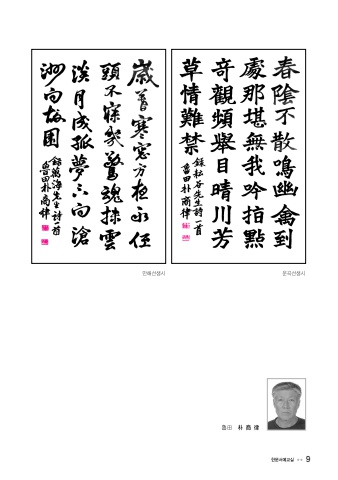 春陰不散鳴幽禽到
處那堪無我吟拍點
奇觀頻擧目晴川芳
草情難禁
谷先生詩一首
田朴商律
歲暮寒窓方夜永低
頭不寐幾驚魂抹雲
淡月成孤夢不向滄
洲向故園
錄萬海先生詩一首
田朴商律
만해선생시
곡선생시
田 朴商律
한문서예교실 9